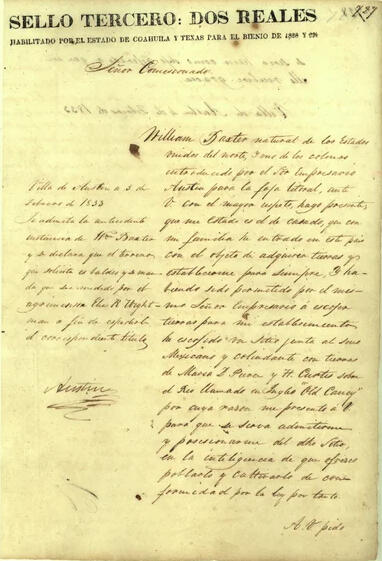 SELLO TERCERO: DOS REALES
HABILITADO POR EL ESTADO DE COAHUILA Y TEXAS PARA EL BIENIO DE 1828 Y 29
727
Señor Comisionado
William Baxter natural de los Estados
Unidos del norte, y uno de los colonos
introducido por el Empresario
Austin para la faja litoral, ante
V. con el mayor respeto, hago presente,
que me estado es el de casado, que con
mi familia he entrado en este pais
con el objeto de adquerir tierras y
establecerme para siempre. I ha-
biendo sido permetido por el mes-
mo Señor Empresario á escojer
tierras para mi establecimiento
he escojido un Sitio junto al
Mexicano y colindante con tierras
de y H. Curtis sobre
el Rio llamado en Ingles "Old Caney"
por cuya rason me presento á V.
para que se sirva admitirme
y posesionarme del dho Sitio,
en la inteligencia de que ofresco
poblarlo y cultivarlo de con-
formidad por la Ley por tanto.
A V. pido
Villa de Austin a 3 de
Febrero de 1833
Se admite la antecedente
instancia de Wm Baxter
y se declara que el terreno
que solicita es baldio y se man-
da que sea medido por el
agrimensor Elias R. Wight-
man a fin de espedirle
el correspondiente título
Austin